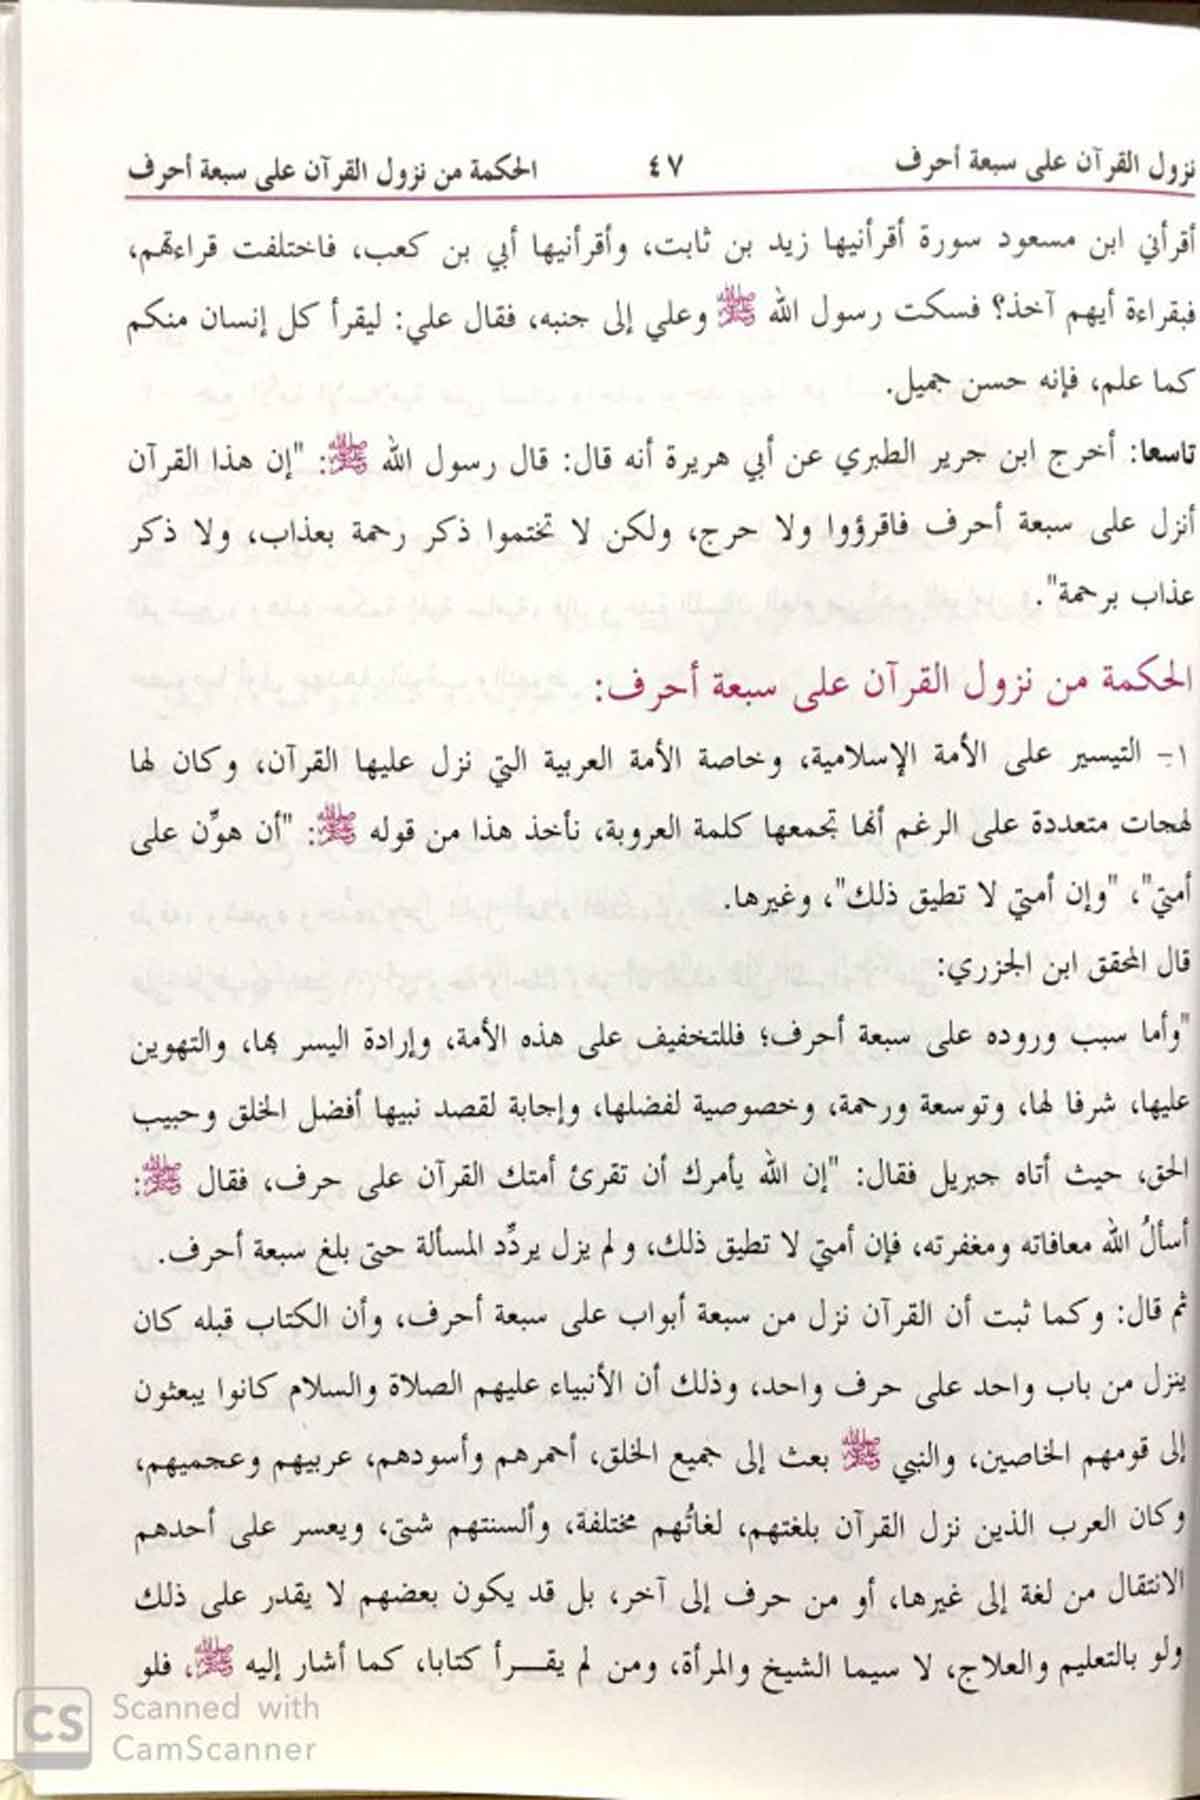 نزول القرآن على سبعة أحرف ٤٧ الحكمة من نزول القرآن على سبعة أحرف
أقرأني ابن مسعود سورة أقرأنيها زيد بن ثابت، وأقرأنيها أبي بن كعب، فاختلفت قراءتهم،
فبقراءة أيهم آخذ؟ فسكت رسول الله ﷺ وعلي إلى جنبه، فقال علي: ليقرأ كل إنسان منكم
كما علم، فإنه حسن جميل.
تاسعا: أخرج ابن جرير الطبري عن أبي هريرة أنه قال: قال رسول الله ﷺ: "إن هذا القرآن
أنزل على سبعة أحرف فاقرؤوا ولا حرج، ولكن لا تختموا ذكر رحمة بعذاب، ولا ذكر
عذاب برحمة".
الحكمة من نزول القرآن على سبعة أحرف:
١- التيسير على الأمة الإسلامية، وخاصة الأمة العربية التي نزل عليها القرآن، وكان لها
لهجات متعددة على الرغم أنها تجمعها كلمة العروبة، نأخذ هذا من قوله ﷺ: "أن هوِّن على
أمتي"، "وإن أمتي لا تطيق ذلك"، وغيرها.
قال المحقق ابن الجزري:
"وأما سبب وروده على سبعة أحرف؛ فللتخفيف على هذه الأمة، وإرادة اليسر بها، والتهوين
عليها، شرفا لها، وتوسعة ورحمة، وخصوصية لفضلها، وإجابة لقصد نبيها أفضل الخلق وحبيب
الحق، حيث أتاه جبريل فقال: "إن الله يأمرك أن تقرئ أمتك القرآن على حرف، فقال ﷺ:
أسألُ الله معافاته ومغفرته، فإن أمتي لا تطيق ذلك، ولم يزل يردِّد المسألة حتى بلغ سبعة أحرف.
ثم قال: وكما ثبت أن القرآن نزل من سبعة أبواب على سبعة أحرف، وأن الكتاب قبله كان
ينزل من باب واحد على حرف واحد، وذلك أن الأنبياء عليهم الصلاة والسلام كانوا يبعثون
إلى قومهم الخاصين، والنبي ﷺ بعث إلى جميع الخلق، أحمرهم وأسودهم، عربيهم وعجميهم،
وكان العرب الذين نزل القرآن بلغتهم، لغاتُهم مختلفة، وألسنتهم شتى، ويعسر على أحدهم
الانتقال من لغة إلى غيرها، أو من حرف إلى آخر، بل قد يكون بعضهم لا يقدر على ذلك
ولو بالتعليم والعلاج، لا سيما الشيخ والمرأة، ومن لم يقـــرأ كتابا، كما أشار إليه ﷺ، فلو
CS Scanned with
CamScanner